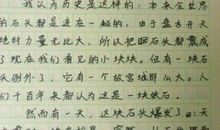 我认为历史是这样的：本来全世界
的石头都是连在一起的，由于盘古开天
地时力量无比大，所以把石头都震成
了现在我们看见的小块块，但有一块石
头例外了，它有一个故宫城那么大。人
们千百年来都认为这是一块铁石。
然而有一天，这块石头爆发了